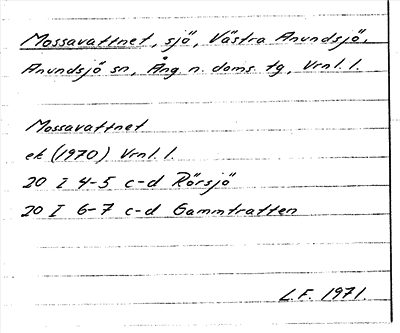 Mossavattnet, sjö, Västra Anundsjö,
Anundsjö sn, Ång. n. doms. tg, Vrnl. l.
Mossavattnet
ek (1970) Vrnl. l.
20 I 4-5 c-d Rörsjö
20 I 6-7 c-d Gammtratten
L.F. 1971.